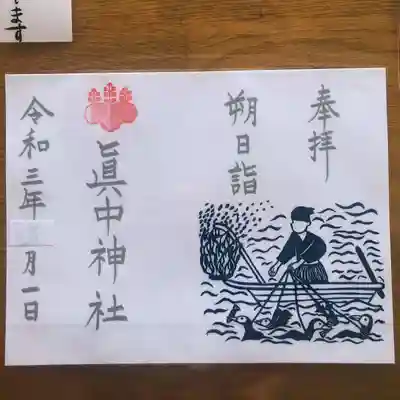 奉拝
朔日詣
眞中神社
令和三年 月一日
ます